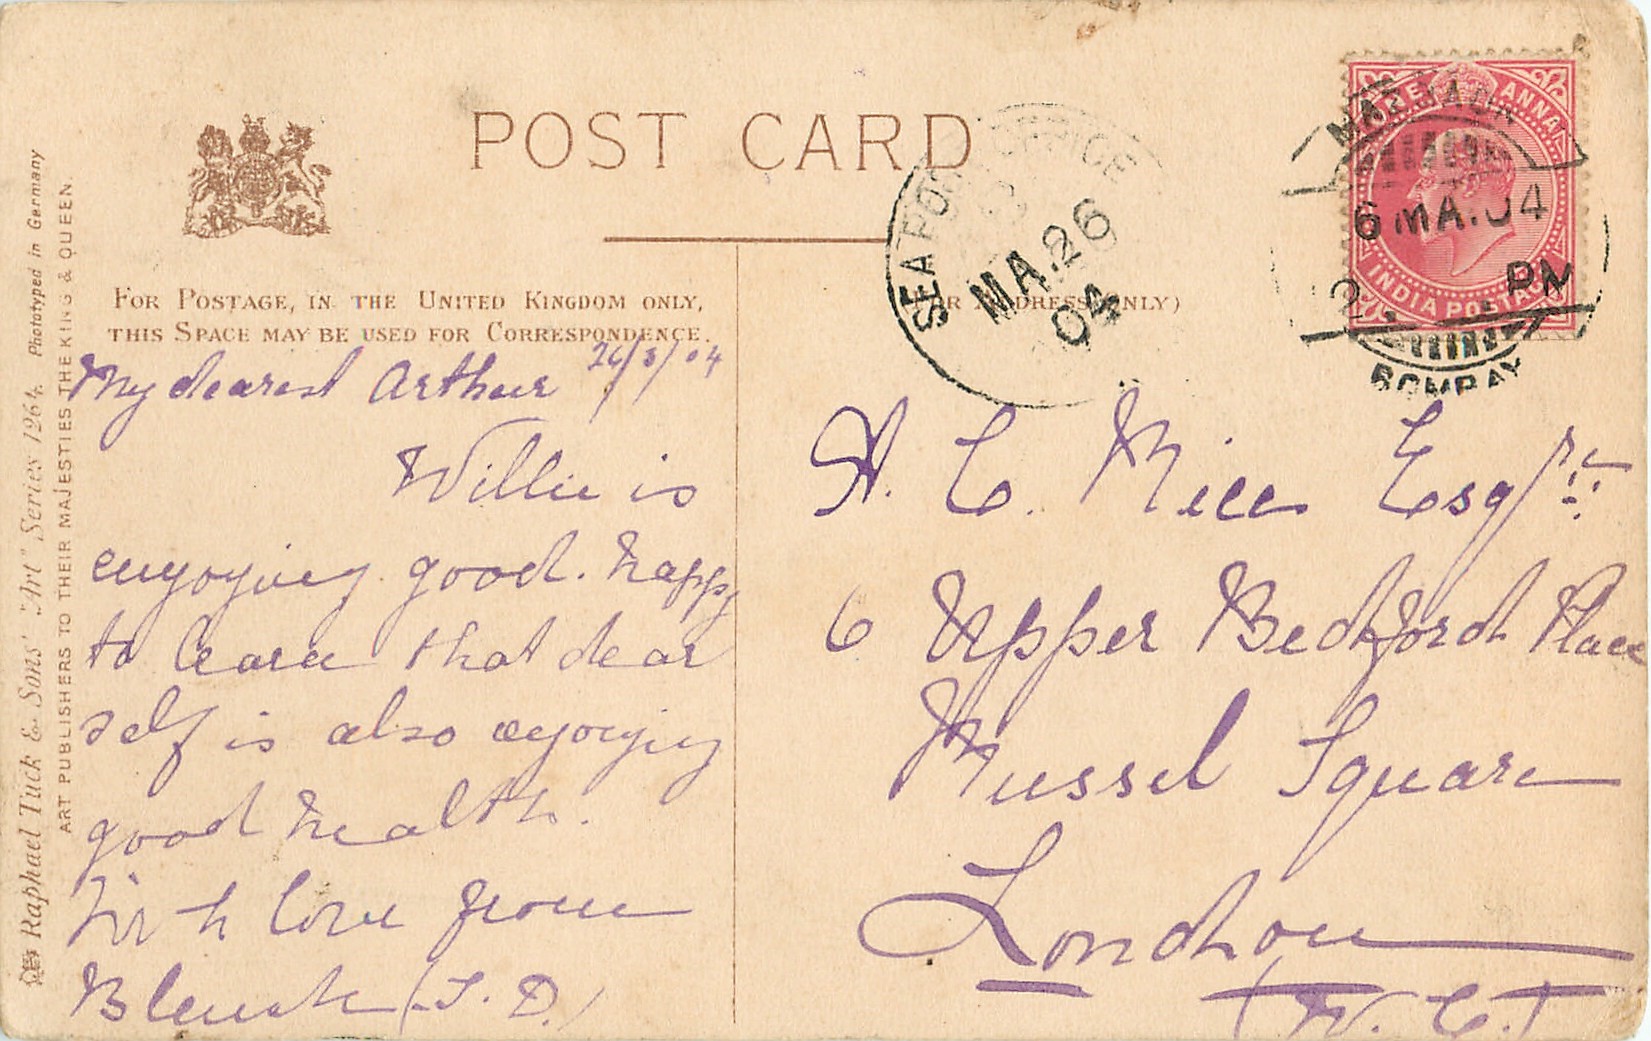 POST CARD
FOR POSTAGE, IN THE UNITED KINGDOM ONLY,
THIS SPACE MAY BE USED FOR CORRESPONDENCE.
(FOR ADDRESS ONLY)
Raphael Tuck & Sons' "Art" Series 1264. Phototyped in Germany
ART PUBLISHERS TO THEIR MAJESTIES THE KING & QUEEN.
ONE ANNA
INDIA POSTAGE
6 MA.04
2. PM
BOMBAY
SEA POST OFFICE
MA.26
04
26/3/04
My dearest Arthur
Willie is
enjoying good. happy
to learn that dear
self is also enjoying
good health.
With love from
(J. D.)
A. C. Esqre
6 Upper Bedford Place
Russel Square
London
(W. C.)